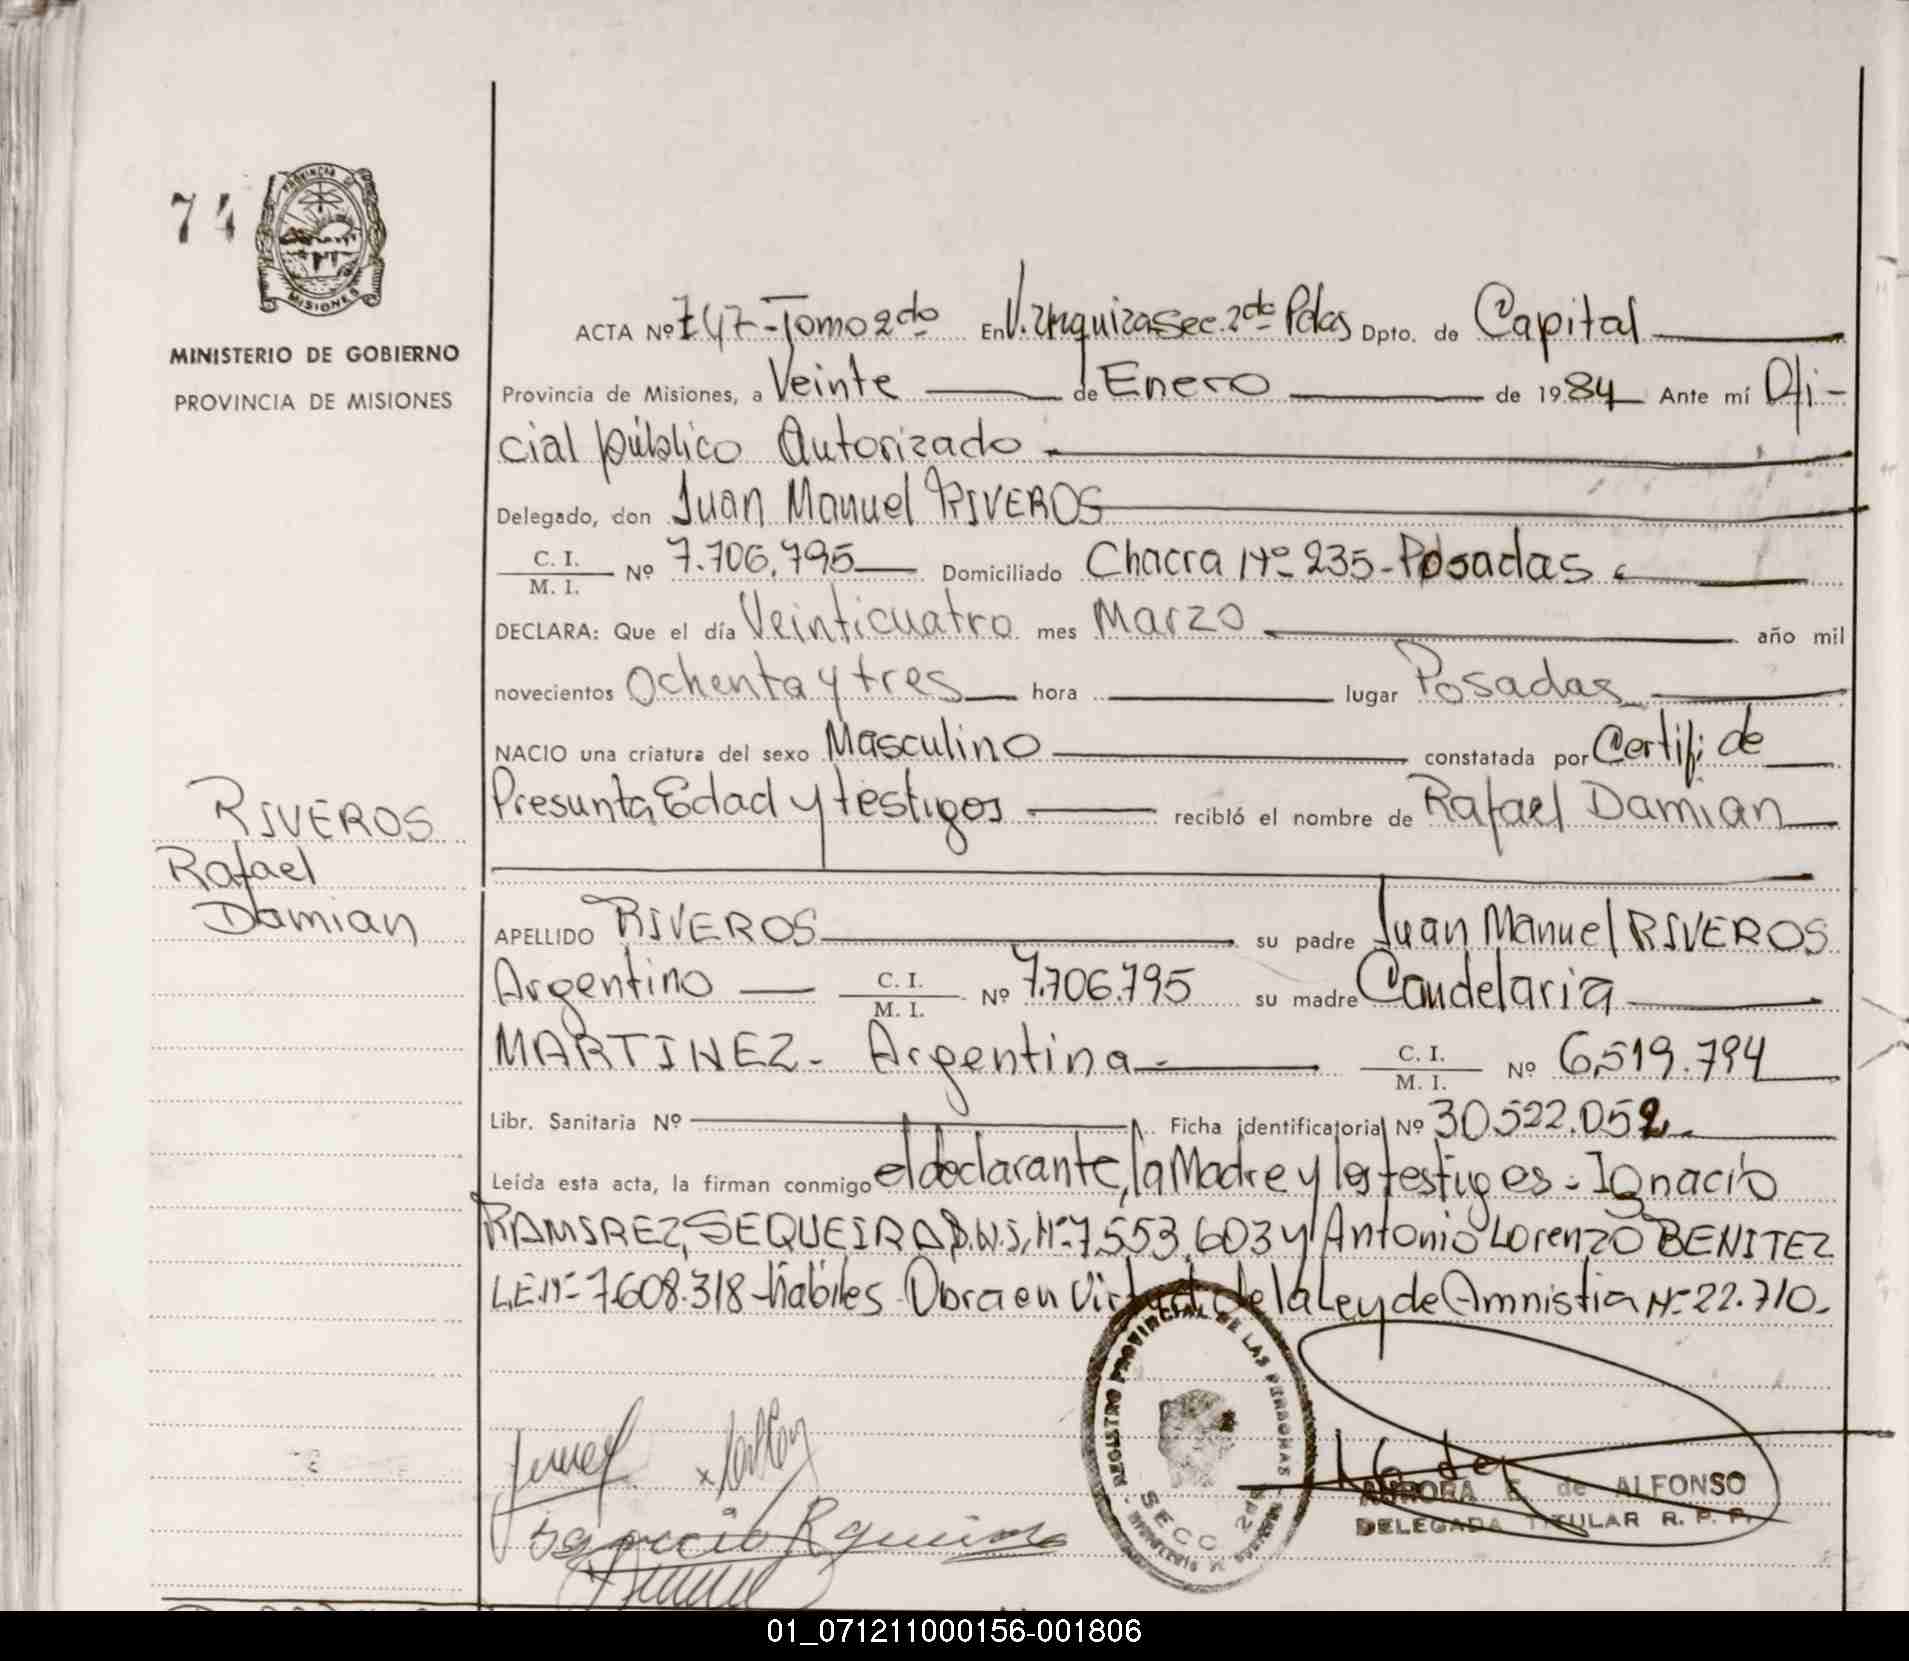 74
PROVINCIA DE
MISIONES
MINISTERIO DE GOBIERNO
PROVINCIA DE MISIONES
ACTA Nº 747-Tomo 2do En V. Urquiza Sec. 2da Pdas Dpto. de Capital
Provincia de Misiones, a Veinte de Enero de 1984 Ante mí Ofi-
cial público Autorizado
Delegado, don Juan Manuel RIVEROS
C. I.
M. I. Nº 7.706.795 Domiciliado Chacra Nº 235-Posadas
DECLARA: Que el día Veinticuatro mes Marzo año mil
novecientos Ochenta y tres hora lugar Posadas
NACIO una criatura del sexo Masculino constatada por Certifi: de
Presunta Edad y testigos recibió el nombre de Rafael Damian
RIVEROS
Rafael
Damian
APELLIDO RIVEROS su padre Juan Manuel RIVEROS
Argentino C. I.
M. I. Nº 7.706.795 su madre Candelaria
MARTINEZ - Argentina - C. I.
M. I. Nº 6.519.794
Libr. Sanitaria Nº Ficha identificatoria Nº 30.522.052
Leída esta acta, la firman conmigo el declarante, la Madre y los testigos - Ignacio
RAMIREZ, SEQUEIRA D.N.I. Nº 7.553.603 y Antonio Lorenzo BENITEZ
L.E. Nº 7.608.318 - hábiles - Obra en Virtud de la Ley de Amnistia Nº 22.710.-
REGISTRO PROVINCIAL DE LAS PERSONAS
SECC 2da
AURORA E. de ALFONSO
DELEGADA TITULAR R. P. P.
01_071211000156-001806